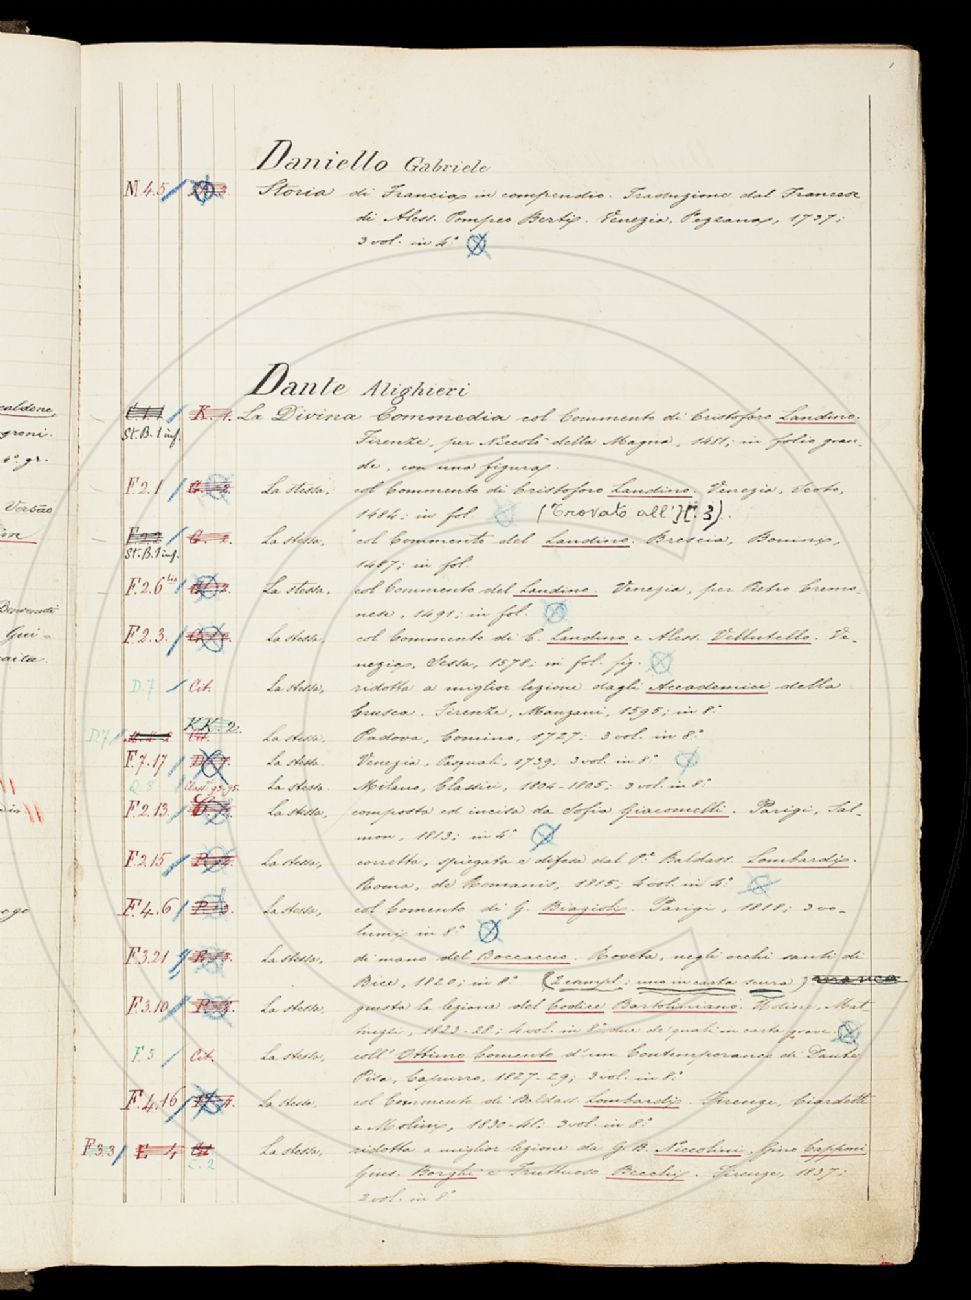 Daniello Gabriele
M 4.5 Storia di Francia in compendio. Traduzione dal Francese
di Aless. Pompeo Berti. Venezia, Pezzana, 1737;
3 vol. in 4.º
Dante Alighieri
K. 1. La Divina Commedia col Commento di Cristoforo Landino.
St. B. 1 inf. Firenze, per Niccolò della Magna, 1481; in folio gran-
de, con una figura.
F 2.1 La stessa, col Commento di Cristoforo Landino. Venezia, Scoto,
1484; in fol. (Trovato all' 3).
La stessa, col Commento del Landino. Brescia, Bonino,
St. B. 1 inf. 1487; in fol.
F. 2.6 bis La stessa, col Commento del Landino. Venezia, per Pietro Cremo-
nese, 1491; in fol.
F 2.3. La stessa, col Commento di C. Landino e Aless. Vellutello. Ve-
nezia, Sessa, 1578; in fol. fig.
D. 7 Cit. La stessa, ridotta a miglior lezione dagli Accademici della
Crusca. Firenze, Manzani, 1595; in 8.º
K.K. 2.
D 7 Cit. La stessa. Padova, Comino, 1727: 3 vol. in 8.º
F. 7.17 La stessa. Venezia, Pasquali, 1739. 3 vol. in 8.º
Q. 8 La stessa. Milano, Classici, 1804-1805; 3 vol. in 8.º
F 2.13 La stessa, composta ed incisa da Sofia Giacomelli. Parigi, Sal-
mon, 1813; in 4.º
F 2.15 La stessa, corretta, spiegata e difesa dal P.e Baldass. Lombardi.
Roma, de Romanis, 1815; 4 vol. in 4.º
F. 4.6 La stessa, col Comento di G. Biagioli. Parigi, 1818; 3 vo-
lumi in 8.º
F 3.21 La stessa, di mano del Boccaccio. Roveta, negli occhi santi di
Bice, 1820; in 8.º (2 esempl: uno in carta)
F 3.10 La stessa, giusta la lezione del Codice Bartoliniano. Udine, Mat-
tiuzzi, 1823-28; 4 vol. in 8.º due de' quali in carta grave
F 3 Cit. La stessa, coll' Ottimo Comento d'un Contemporaneo di Dante
Pisa, Capurro, 1827-29; 3 vol. in 8.º
F. 4. 16 La stessa, col Commento di Baldass. Lombardi. Firenze, Ciardetti
e Molini, 1830-41. 3 vol. in 8.º
F 3.3 E 4 La stessa, ridotta a miglior lezione da G.B. Niccolini, Gino Capponi
C. 2 Gius. Borghi e Fruttuoso Becchi. Firenze, 1837;
2 vol. in 8.º